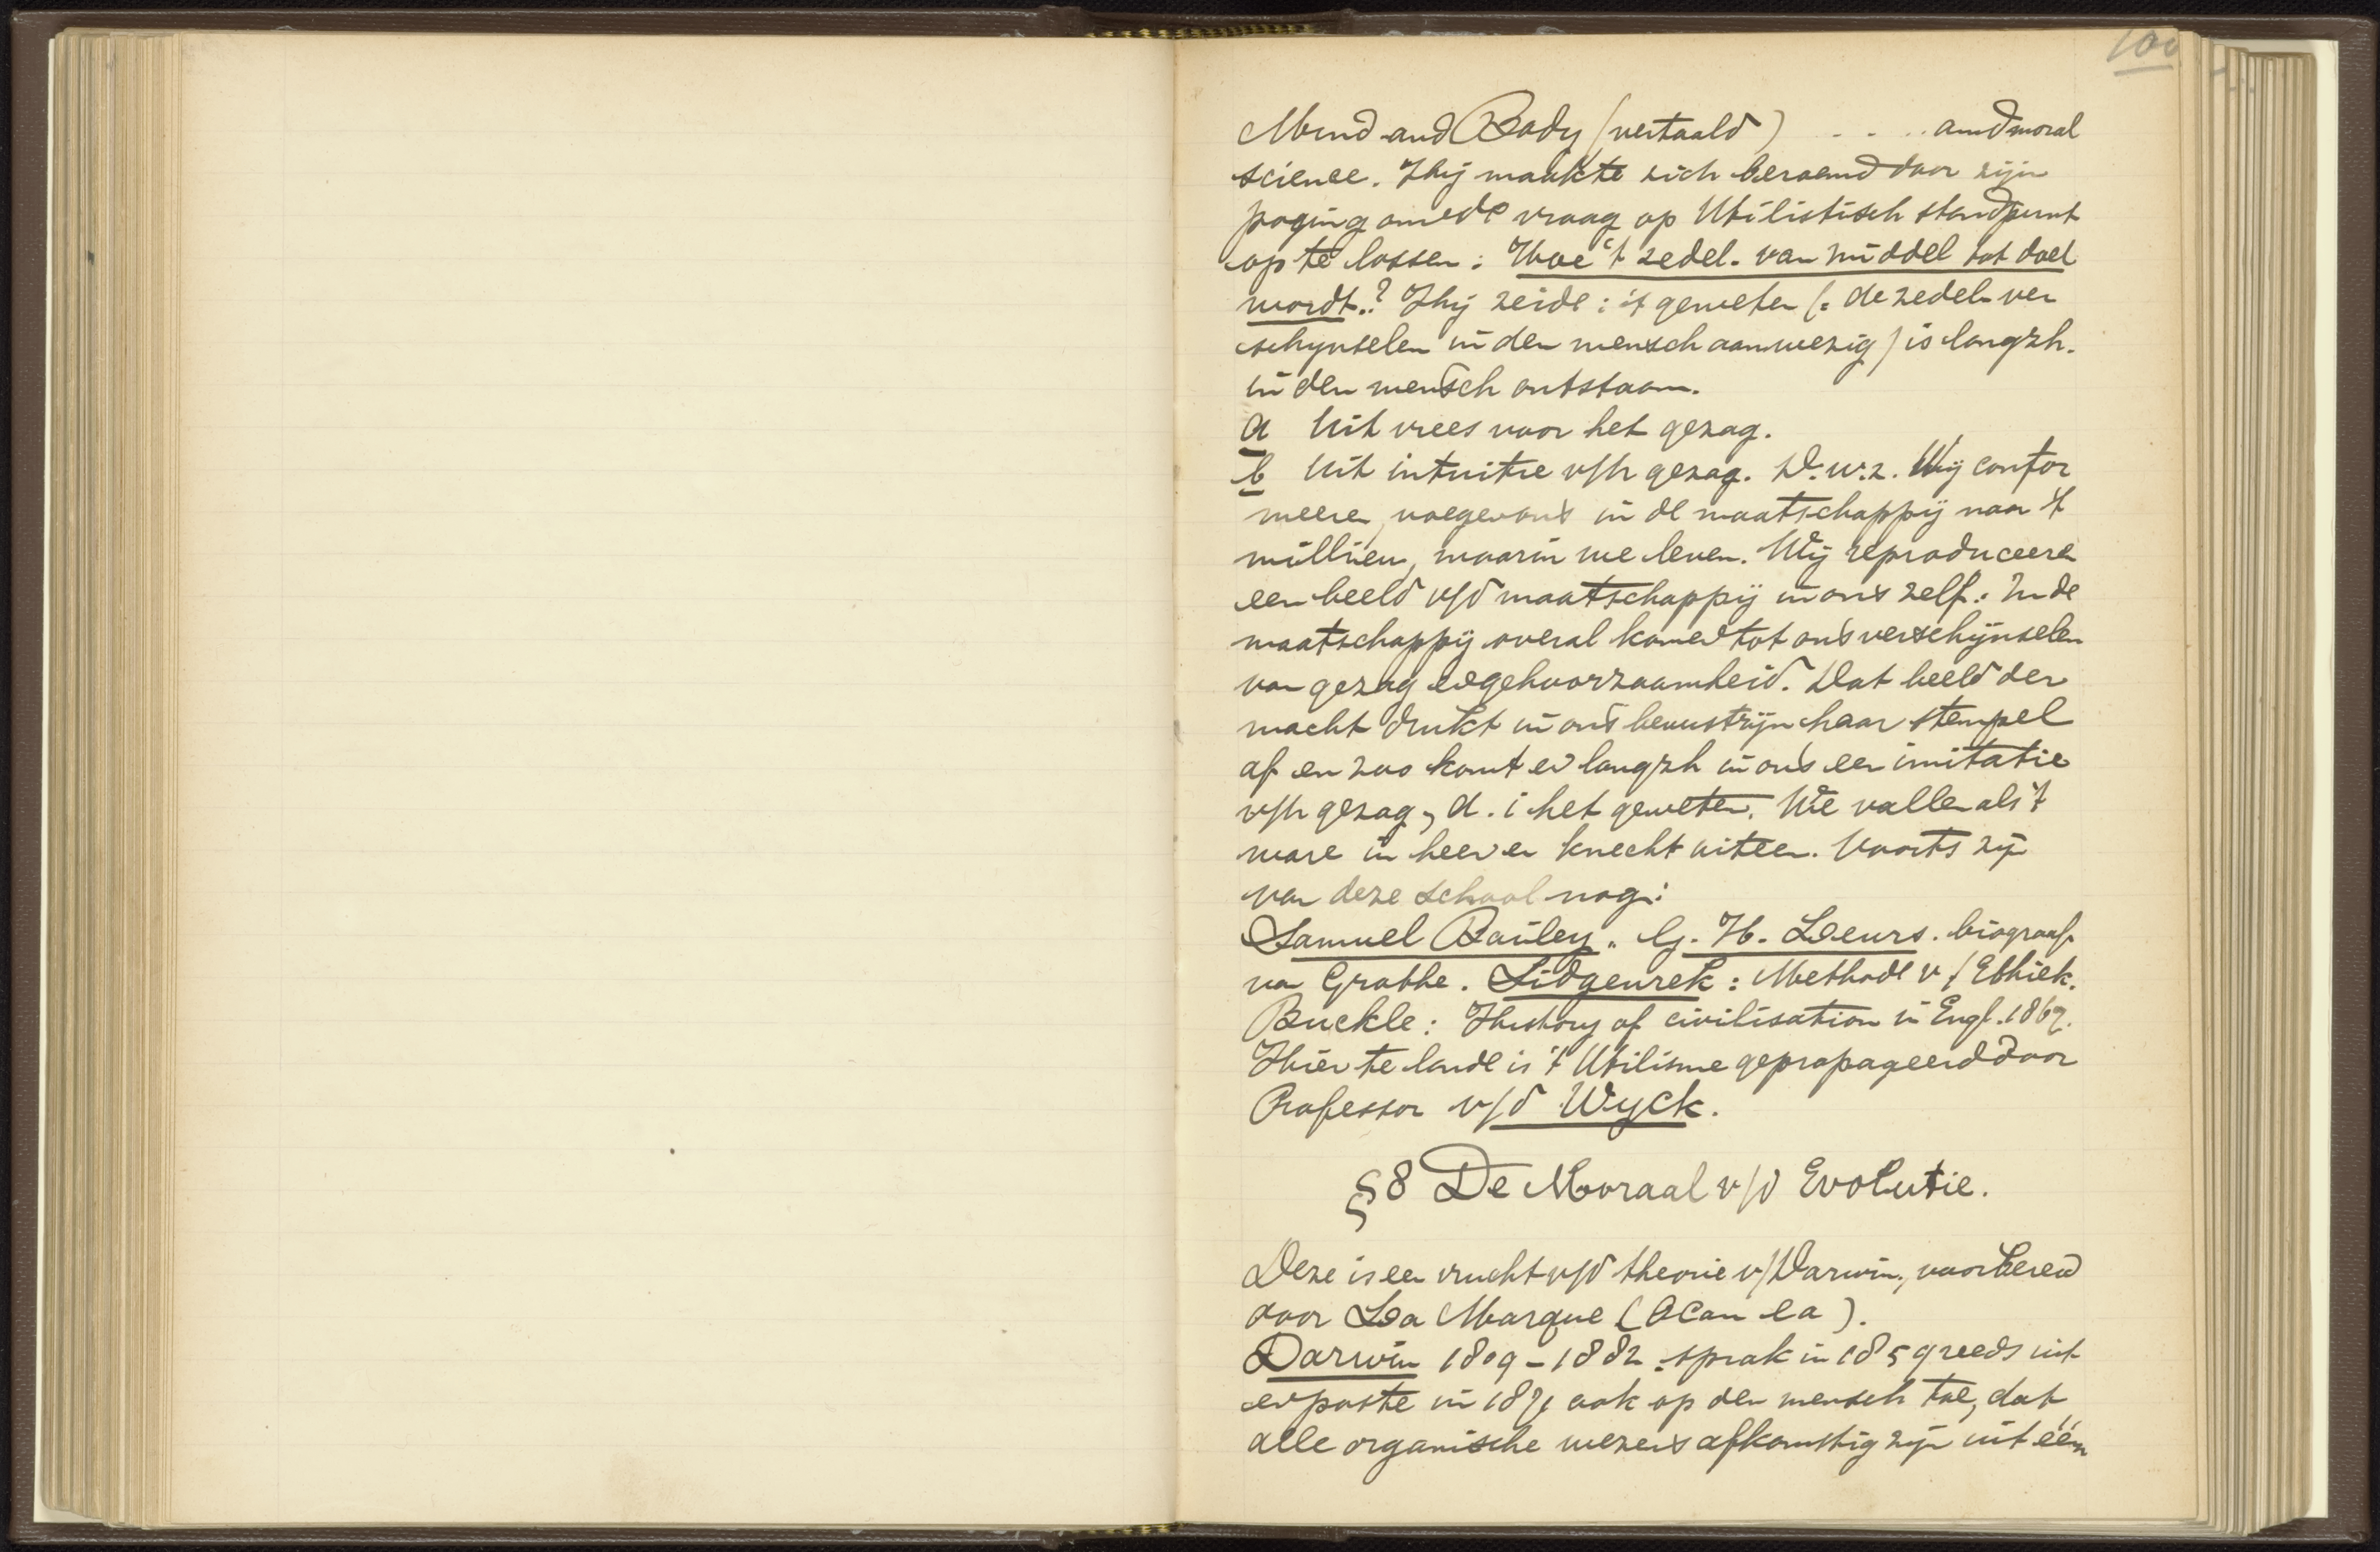 100
Mind and Body (vertaald) - - .. and moral
science. Hij maakte zich beroemd door zijn
poging om de vraag op Utilistisch standpunt
op te lossen: Hoe 't zedel. van middel tot doel
wordt.? Hij zeide: 't geweten (= de zedel. ver
schijnselen in den mensch aanwezig) is langzh.
in den mensch ontstaan.
a Uit vrees voor het gezag.
b Uit intuitie v/h gezag. D.w.z. Wij confor
meeren, voegen ons in de maatschappij naar 't
millieu, waarin we leven. Wij reproduceeren
een beeld v/d maatschappij in ons zelf. In de
maatschappij overal komen tot ons verschijnselen
van gezag en gehoorzaamheid. Dat beeld der
macht drukt in ons bewustzijn haar stempel
af en zoo komt er langzh in ons een imitatie
v/h gezag, d.i het geweten. We vallen als 't
ware in heer en knecht uiteen. Voorts zijn
van deze school nog:
Samuel Bailey. G. H. Lewrs. biograaf
van Grothe. Sidgewrek: Methode v/ Ethiek.
Buckle: History of civilisation in Engl. 1869.
Hier te lande is 't Utilisme gepropageerd door
Professor v/d Wyck.
§8 De Moraal v/d Evolutie.
Deze is een vrucht v/d theorie v/Darwin, voorbereid
door La Marque ( la).
Darwin 1809-1882. sprak in 1859 reeds uit
en paste in 1871 ook op den mensch toe, dat
alle organische wezens afkomstig zijn uit één